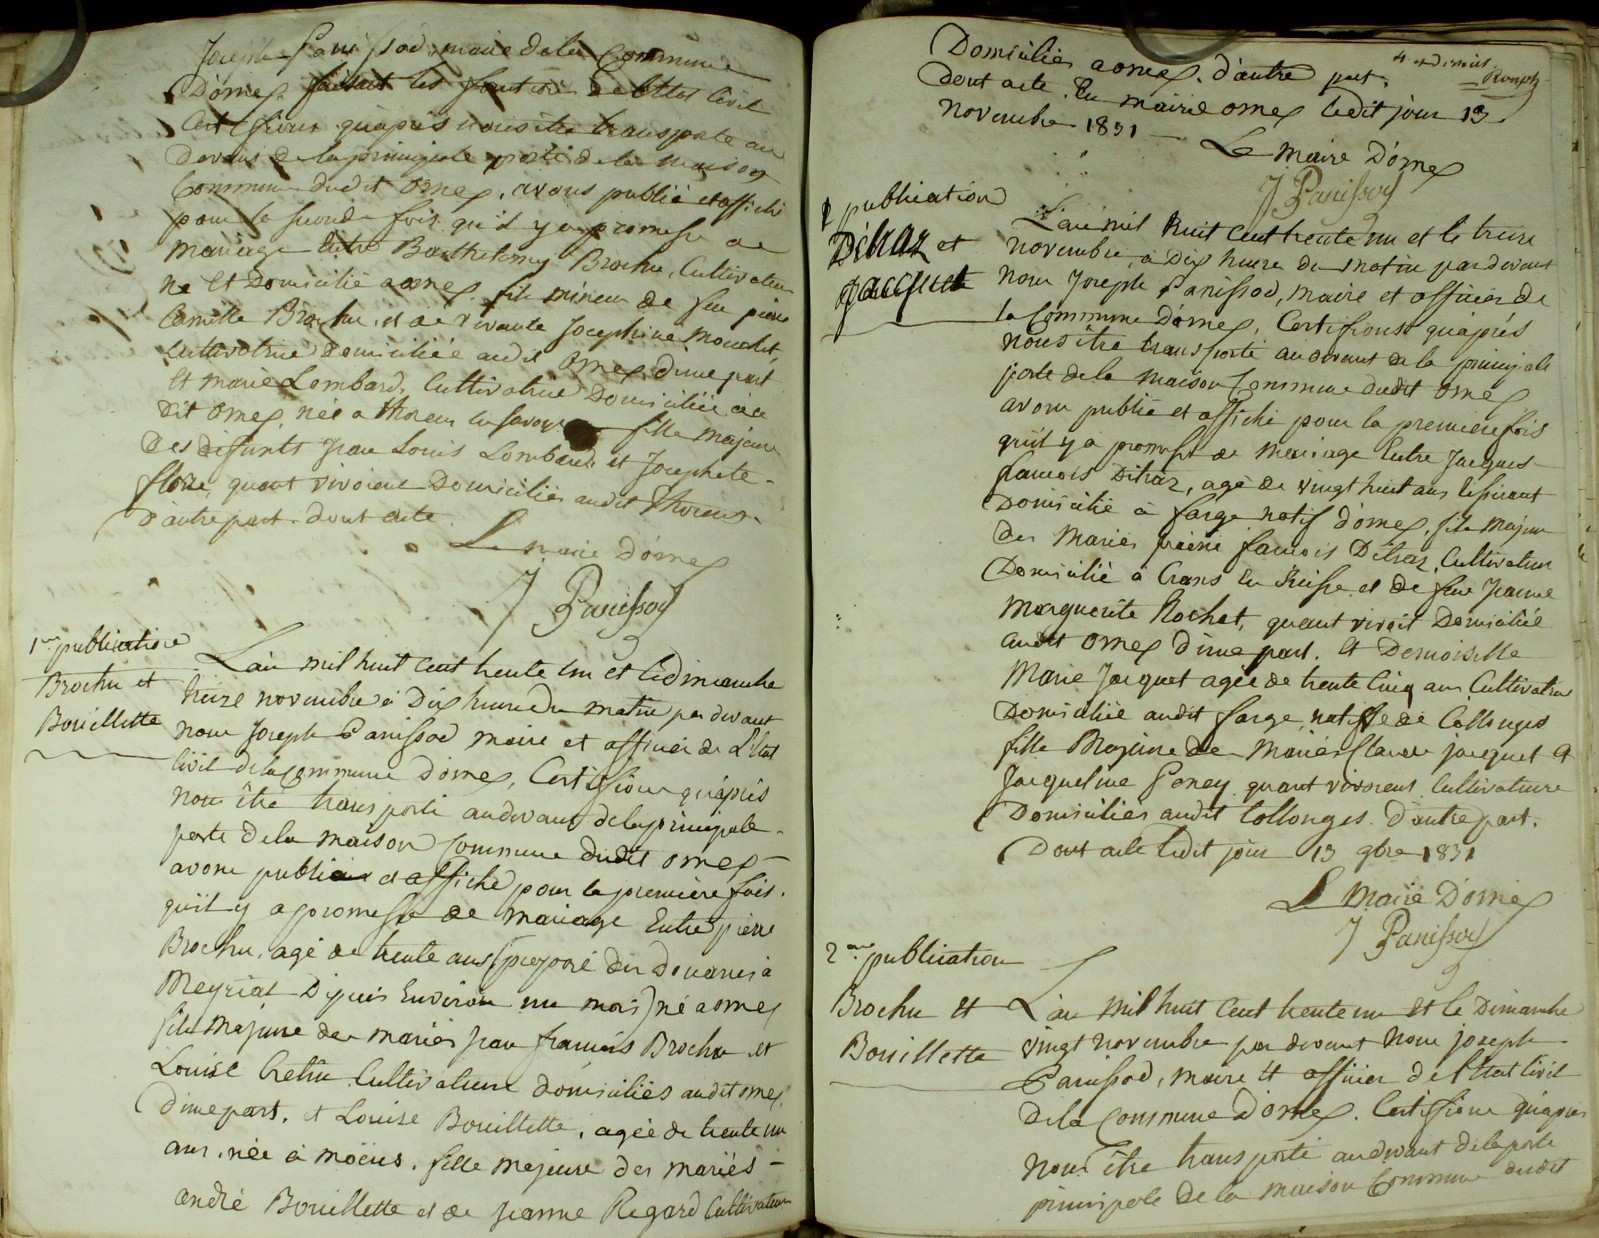 Joseph Panissod, maire de la Commune
D'ornex, faisant les fonctions de l'Etat Civil
Certifions qu'après nous être transporté au
Devant de la principale porte de la maison
Commune dudit Ornex, avons publié et affiché
pour la seconde fois qu'il y a promesse de
mariage entre Barthelemy Brochu, Cultivateur
né et Domicilié a ornex fils mineur de feu pierre
Camille Brochu, et de vivante Josephine Mouchet,
cultivatrice Domiciliée audit Ornex, d'une part
Et marie Lombard, Cultivatrice Domiciliée au
dit Ornex, née a thorens en savoye fille majeure
Des defunts Jean Louis Lombard et Josephete
quant vivoient Domiciliés audit Thorens
D'autre part. dont acte.
Le maire D'ornex
J Panissod
1ere publication
Brochu et
Bouillette
L'an mil huit cent trente un et le dimanche
treize novembre à Dix heures du matin par devant
nous Joseph Panissod maire et officier de L'Etat
civil de la Commune D'ornex, Certifions qu'après
nous être transporté audevant de la principale
porte de la maison Commune dudit ornex
avons publié et affiché pour la première fois
qu'il y a promesse de mariage Entre pierre
Brochu, agé de trente ans (preposé des Douanes à
Meyriat Depuis Environ un mois) né a ornex
fils majeure des mariés Jean francois Brochu et
Louise Cultivateurs domiciliés audit ornex
D'une part. et Louise Bouillette, agée de trente un
ans, née à moëns, fille majeure des mariés
André Bouillette et de Jeanne Regard Cultivateurs
Domiciliés a ornex, d'autre part.
Dont acte. En mairie ornex ledit jour 13
novembre 1831
Le maire D'ornex
J Panissod
1 publication
Détraz et
Jacquette
L'an mil huit cent trente un et le treize
novembre, à Dix heures du matin par devant
nous Joseph Panissod, maire et officier de
la Commune D'ornex, Certifions qu'après
nous être transporté audevant de la principale
porte de la maison Commune dudit ornex
avons publié et affiché pour la premiere fois
qu'il y a promesse de mariage Entre Jacques
francois Détraz, agé de vingt huit ans
Domicilié à farge natif d'ornex, fils majeur
des mariés francois Détraz, Cultivateur
Domicilié à Crans En Suisse et de feue Jeanne
Marguerite Rochat, quant vivoit Domiciliée
audit Ornex D'une part. Et Demoiselle
Marie Jacquet agée de trente cinq ans Cultivatrice
Domiciliée audit farge, native de Collonges
fille Majeure des Mariés Claude jacquet et
Jacqueline quant vivoient Cultivateurs
Domiciliés audit Collonges. D'autre part.
Dont acte ledit jour 13 9bre 1831
Le Maire D'ornex
J Panissod
2me publication
Brochu et
Bouillette
L'an mil huit cent trente un et le Dimanche
vingt novembre par devant nous joseph
Panissod, maire et officier de l'Etat Civil
De la Commune D'ornex. Certifions qu'après
nous être transporté audevant de la porte
principale De la maison Commune dudit